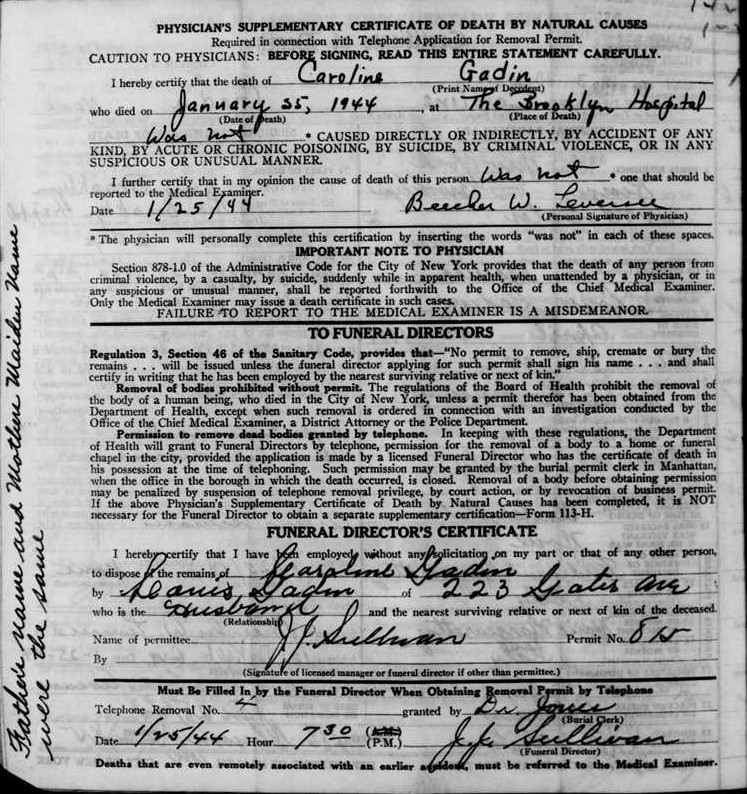 PHYSICIAN'S SUPPLEMENTARY CERTIFICATE OF DEATH BY NATURAL CAUSES
Required in connection with Telephone Application for Removal Permit.
CAUTION TO PHYSICIANS: BEFORE SIGNING, READ THIS ENTIRE STATEMENT CAREFULLY.
I hereby certify that the death of Caroline Gadin
(Print Name of Decedent)
who died on January 25, 1944, at The Brooklyn Hospital
(Date of Death) (Place of Death)
Was not * CAUSED DIRECTLY OR INDIRECTLY, BY ACCIDENT OF ANY
KIND, BY ACUTE OR CHRONIC POISONING, BY SUICIDE, BY CRIMINAL VIOLENCE, OR IN ANY
SUSPICIOUS OR UNUSUAL MANNER.
I further certify that in my opinion the cause of death of this person was not * one that should be
reported to the Medical Examiner.
Date 1/25/44 Beecher W.
(Personal Signature of Physician)
* The physician will personally complete this certification by inserting the words "was not" in each of these spaces.
IMPORTANT NOTE TO PHYSICIAN
Section 878-1.0 of the Administrative Code for the City of New York provides that the death of any person from
criminal violence, by a casualty, by suicide, suddenly while in apparent health, when unattended by a physician, or in
any suspicious or unusual manner, shall be reported forthwith to the Office of the Chief Medical Examiner.
Only the Medical Examiner may issue a death certificate in such cases.
FAILURE TO REPORT TO THE MEDICAL EXAMINER IS A MISDEMEANOR.
TO FUNERAL DIRECTORS
Regulation 3, Section 46 of the Sanitary Code, provides that—"No permit to remove, ship, cremate or bury the
remains . . . will be issued unless the funeral director applying for such permit shall sign his name . . . and shall
certify in writing that he has been employed by the nearest surviving relative or next of kin."
Removal of bodies prohibited without permit. The regulations of the Board of Health prohibit the removal of
the body of a human being, who died in the City of New York, unless a permit therefor has been obtained from the
Department of Health, except when such removal is ordered in connection with an investigation conducted by the
Office of the Chief Medical Examiner, a District Attorney or the Police Department.
Permission to remove dead bodies granted by telephone. In keeping with these regulations, the Department
of Health will grant to Funeral Directors by telephone, permission for the removal of a body to a home or funeral
chapel in the city, provided the application is made by a licensed Funeral Director who has the certificate of death in
his possession at the time of telephoning. Such permission may be granted by the burial permit clerk in Manhattan,
when the office in the borough in which the death occurred, is closed. Removal of a body before obtaining permission
may be penalized by suspension of telephone removal privilege, by court action, or by revocation of business permit.
If the above Physician's Supplementary Certificate of Death by Natural Causes has been completed, it is NOT
necessary for the Funeral Director to obtain a separate supplementary certification—Form 113-H.
FUNERAL DIRECTOR'S CERTIFICATE
I hereby certify that I have been employed without any solicitation on my part or that of any other person,
to dispose of the remains of Caroline Gadin
by Louis Gadin of 223 Gates Ave
who is the Husband and the nearest surviving relative or next of kin of the deceased.
(Relationship)
Name of permittee J.J. Sullivan Permit No.
By
(Signature of licensed manager or funeral director if other than permittee.)
Must Be Filled In by the Funeral Director When Obtaining Removal Permit by Telephone
Telephone Removal No. 4 granted by Dr. Jones
(Burial Clerk)
Date 1/25/44 Hour 7 30 (A.M.)
(P.M.) J.J. Sullivan
(Funeral Director)
Deaths that are even remotely associated with an earlier accident, must be referred to the Medical Examiner.
Fathers name and Mothers Maiden Name
were the same